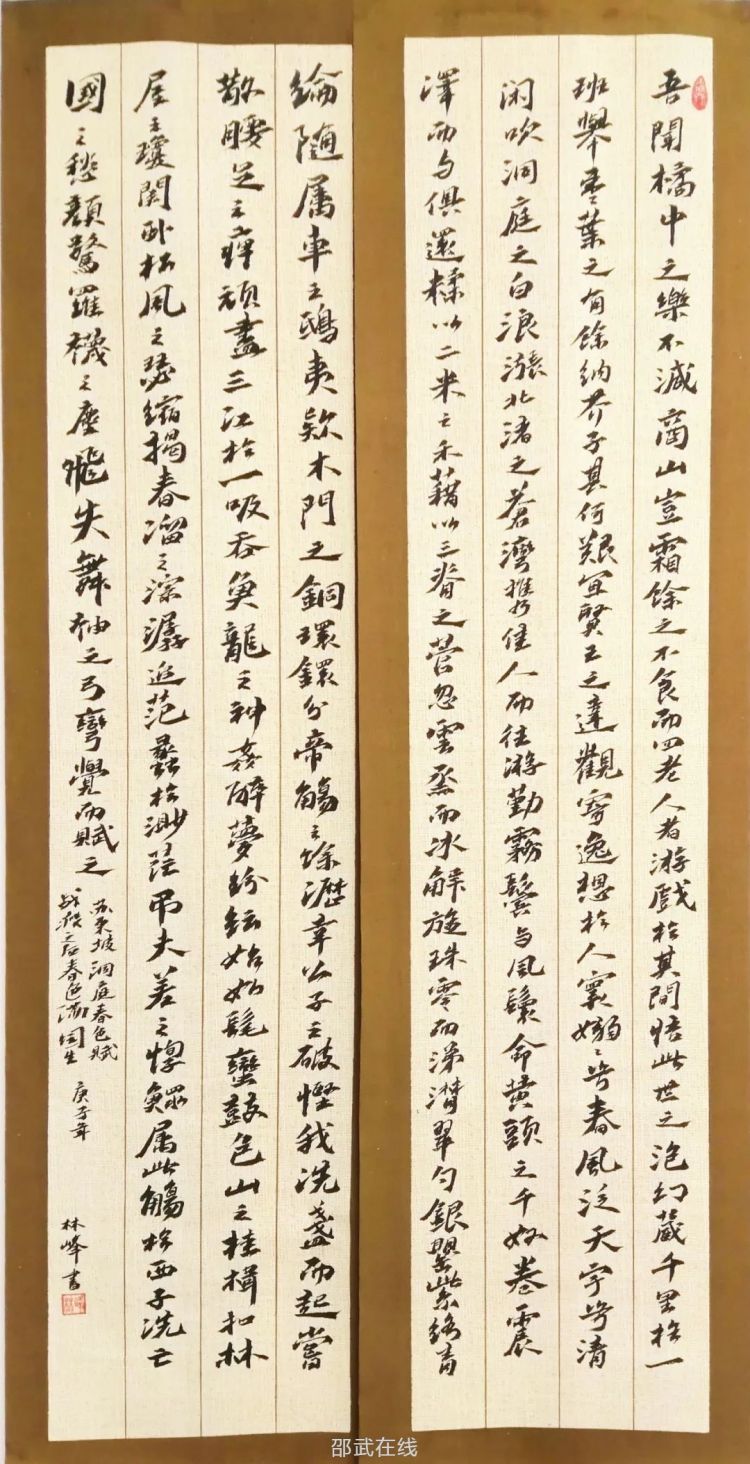 吾聞橘中之樂不減商山豈霜餘之不食而四老人者游戲於其間悟此世之泡幻藏千里於一
班舉棗葉之有餘納芥子其何艱宜賢王之達觀寄逸想於人寰嫋々兮春風泛天宇兮清
闲吹洞庭之白浪漲北渚之蒼灣攜佳人而往游勤霧鬢与風鬟命黄頭之千奴卷震
澤而与俱還糅以二米之禾藉以三脊之菅忽雲烝而冰解旋珠零而涕潸翠勺銀罌紫絡青
綸随属車之鴟夷款木門之銅環鐶分帝觴之餘瀝幸公子之破慳我洗盞而起嘗
散腰足之痺頑盡三江於一吸吞魚龍之神姦醉夢紛紜始如髦蠻鼓包山之桂楫扣林
屋之瓊関卧松風之瑟縮揭春溜之淙潺追范蠡於渺茫吊夫差之惸鰥属此觴於西子洗亡
國之愁顔驚羅襪之塵飛失舞袖之弓彎覺而賦之
苏東坡洞庭春色賦
战疫之后春色满園生 庚子年
林峰書
邵武在线